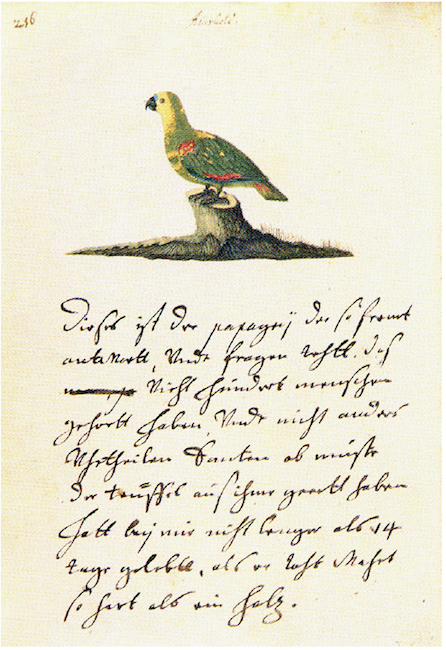 216
Dieses ist der papageij der so fremt
antwortt, Unde fragen tehtt. das
Vicht hundert menschen
gehortt haben, Unde nicht anders
Uhrtheilen konten ob müste
der teüffel aus ihme geredt haben
hatt beij mir nicht lenger als 14
tage gelebtt, als er toht wahr
so hart als ein holtz.